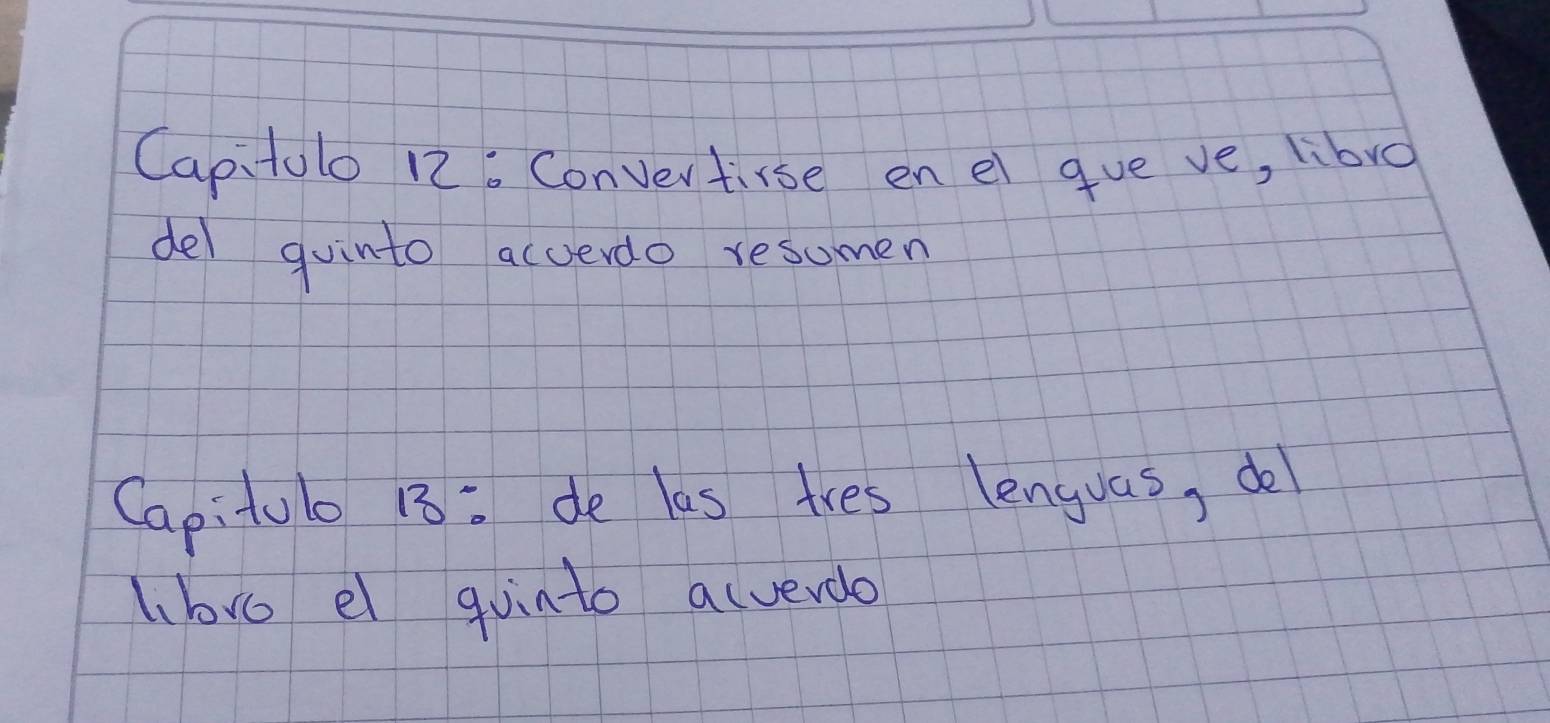 Capitulo 12: Convertirse en el que ve, libro
del quinto acuerdo resumen
Capitulo 13: de las tres lenguas, del
libro el quinto acuerdo